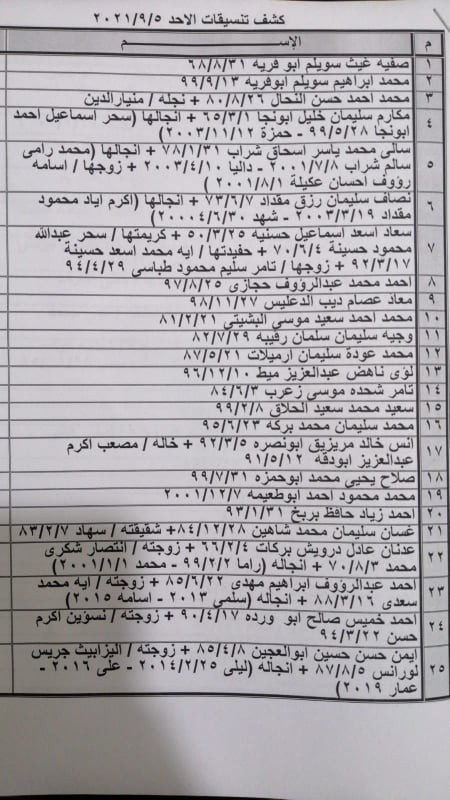 كشف تنسيقات الاحد ٢٠٢١/٩/٥
م الإســــــــم
١ صفيه غيث سويلم ابو فريه ٦٨/٨/٣١
٢ محمد ابراهيم سويلم ابوفريه ٩٩/٩/١٣
٣ محمد احمد حسن النحال ٨٠/٨/٢٦ + نجله / منيارالدين
٤ مكارم سليمان خليل ابونجا ٦٥/٣/١ + انجالها (سحر اسماعيل احمد
ابونجا ٩٩/٥/٢٨ - حمزة ٢٠٠٣/١١/١٢)
٥ سالى محمد ياسر اسحاق شراب ٧٨/١/٣١ + انجالها (محمد رامى
سالم شراب ٢٠٠١/٧/٨ - داليا ٢٠٠٣/٤/١٠ + زوجها / اسامه
رؤوف احسان عكيلة ٢٠٠١/٨/١ )
٦ نصاف سليمان رزق مقداد ٧٣/٦/٧ + انجالها (اكرم اياد محمود
مقداد ٢٠٠٣/٣/١٩ - شهد ٢٠٠٤/٦/٣٠)
٧ سعاد اسعد اسماعيل حسنيه ٥٠/٣/٢٥ + كريمتها / سحر عبدالله
محمود حسينة ٧٠/٦/٤ + حفيدتها / ايه محمد اسعد حسينة
٩٢/٣/١٧ + زوجها / تامر سليم محمود طباسى ٩٤/٤/٢٩
٨ احمد محمد عبدالرؤوف حجازى ٩٧/٨/٢٥
٩ معاذ عصام ديب الدعليس ٩٨/١١/٢٧
١٠ محمد احمد سعيد موسى البشيتي ٨١/٢/٢١
١١ وجيه سليمان سلمان رقيبه ٨٢/٧/٢٩
١٢ محمد عودة سليمان ارميلات ٨٧/٥/٢١
١٣ لؤى ناهض عبدالعزيز ميط ٩٦/١٢/١٠
١٤ تامر شحده موسى زعرب ٨٤/٦/٣
١٥ سعيد محمد سعيد الحلاق ٩٩/٢/٨
١٦ محمد سليمان محمد بركه ٩٥/٦/٢٣
١٧ انس خالد مريزيق ابونصره ٩٢/٣/٥ + خاله / مصعب اكرم
عبدالعزيز ابودقه ٩١/٥/١٢
١٨ صلاح يحيى محمد ابوحمزه ٩٩/٧/٣١
١٩ محمد محمود احمد ابوطعيمه ٢٠٠١/١٢/٧
٢٠ احمد زياد حافظ بربخ ٩٣/١/٣١
٢١ غسان سليمان محمد شاهين ٨٤/١٢/٢٨+ شقيقته / سهاد ٨٣/٢/٧
٢٢ عدنان عادل درويش بركات ٦٦/٢/٤ + زوجته / انتصار شكرى
محمد ٧٠/٨/٣ + انجاله (راما ٩٩/٢/٢ - محمد ٢٠٠١/١/١)
٢٣ احمد عبدالرؤوف ابراهيم مهدى ٨٥/٦/٢٢ + زوجته / ايه محمد
سعدى ٨٨/٣/١٦ + انجاله (سلمى ٢٠١٣ - اسامه ٢٠١٥)
٢٤ احمد خميس صالح ابو ورده ٩٠/٤/١٧ + زوجته / نسرين اكرم
حسن ٩٤/٣/٢٢
٢٥ ايمن حسن حسين ابوالعجين ٨٥/٤/٨ + زوجته / اليزابيث جريس
لورانس ٨٧/٨/٥ + انجاله (ليلى ٢٠١٤/٢/٢٥ - على ٢٠١٦ -
عمار ٢٠١٩)